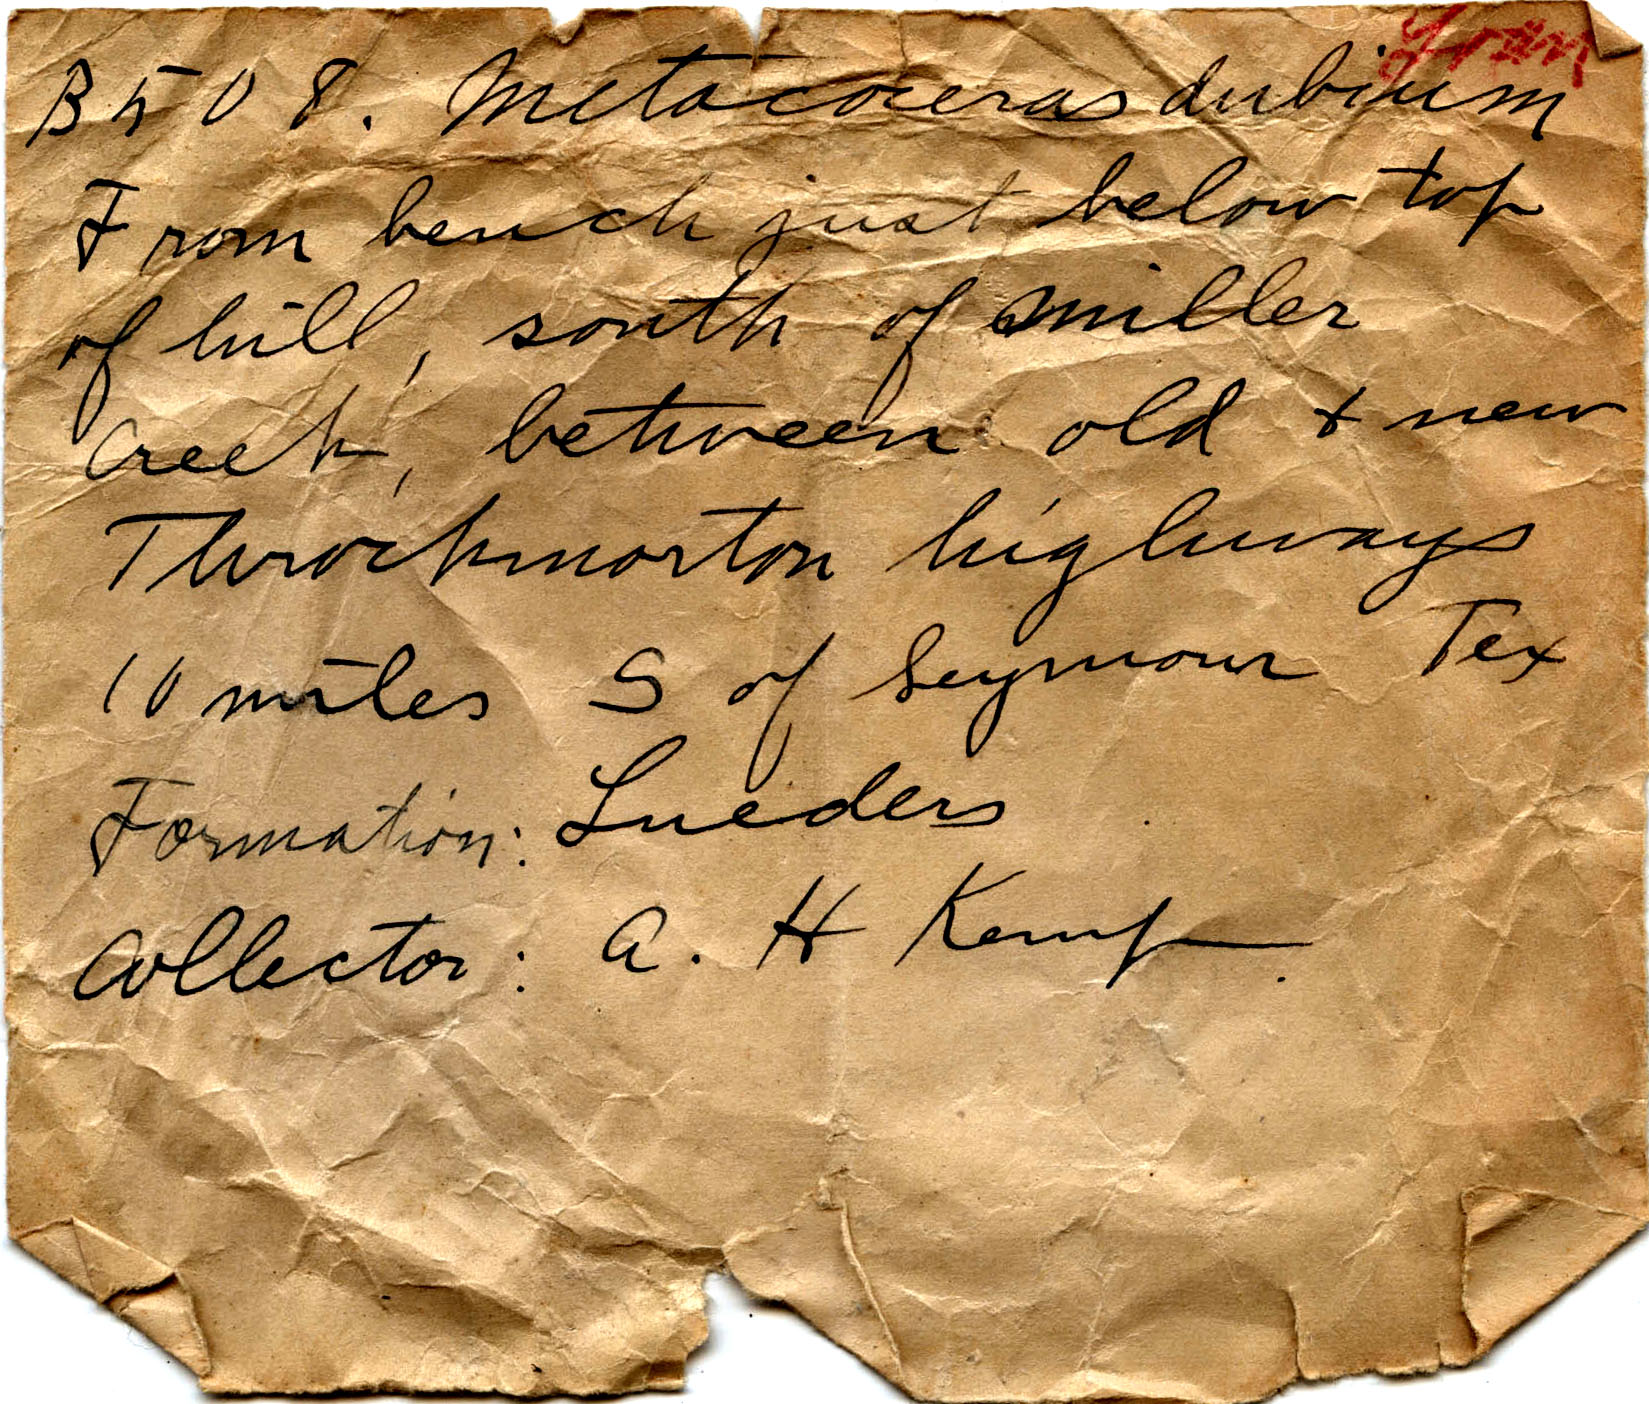 B508. Metacoceras dubium
From bench just below top
of hill, south of Miller
Creek, between old + new
Throckmorton highways
10 miles S of Seymour Tex
Formation: Lueders
Collector: A. H Kemp.